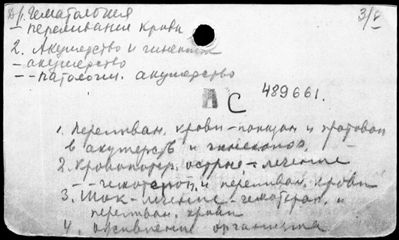 Вр. Гематология 3/8
— переливания крови
2. Акушерство и гинекол
— акушерство
— — патологич. акушерство
А С 489661.
1. переливан. крови — показан и противопоп
в акушерств и гинекологи.
2. Кровопотер. острые — лечение
— — и переливан. крови
3. Шок — лечение — гемотерап. и
переливан. крови
4. оживление организма